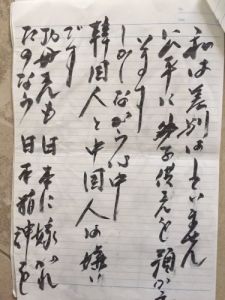 私は差別はしていません
公平に子供さんを預かって
います
しかしながら心中
韓国人と中国人は嫌い
です
お母さんも日本に嫁がれ
たのなら日本精神を